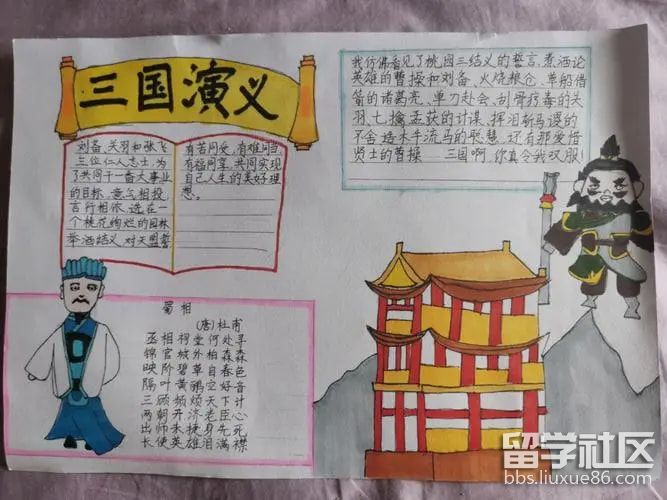 三国演义
刘备、关羽和张飞
三位仁人志士,为
了共同干一番大事业
的目标,意气相投,
言行相依,选在一
个桃花绚烂的园林
举酒结义,对天盟誓
有苦同受,有难同当
有福同享,共同实现
自己人生的美好理
想。
我仿佛看见了桃园三结义的誓言,煮酒论
英雄的曹操和刘备、火烧粮仓、草船借
箭的诸葛亮、单刀赴会、刮骨疗毒的关
羽、七擒孟获的计谋、挥泪斩马谡的
不舍、造木牛流马的聪慧,还有那爱惜
贤士的曹操……三国啊,你真令我双服!
蜀相
(唐)杜甫
丞相祠堂何处寻
锦官城外柏森森
映阶碧草自春色
隔叶黄鹂空好音
三顾频烦天下计
两朝开济老臣心
出师未捷身先死
长使英雄泪满襟
留学社区
bbs.liuxue86.com